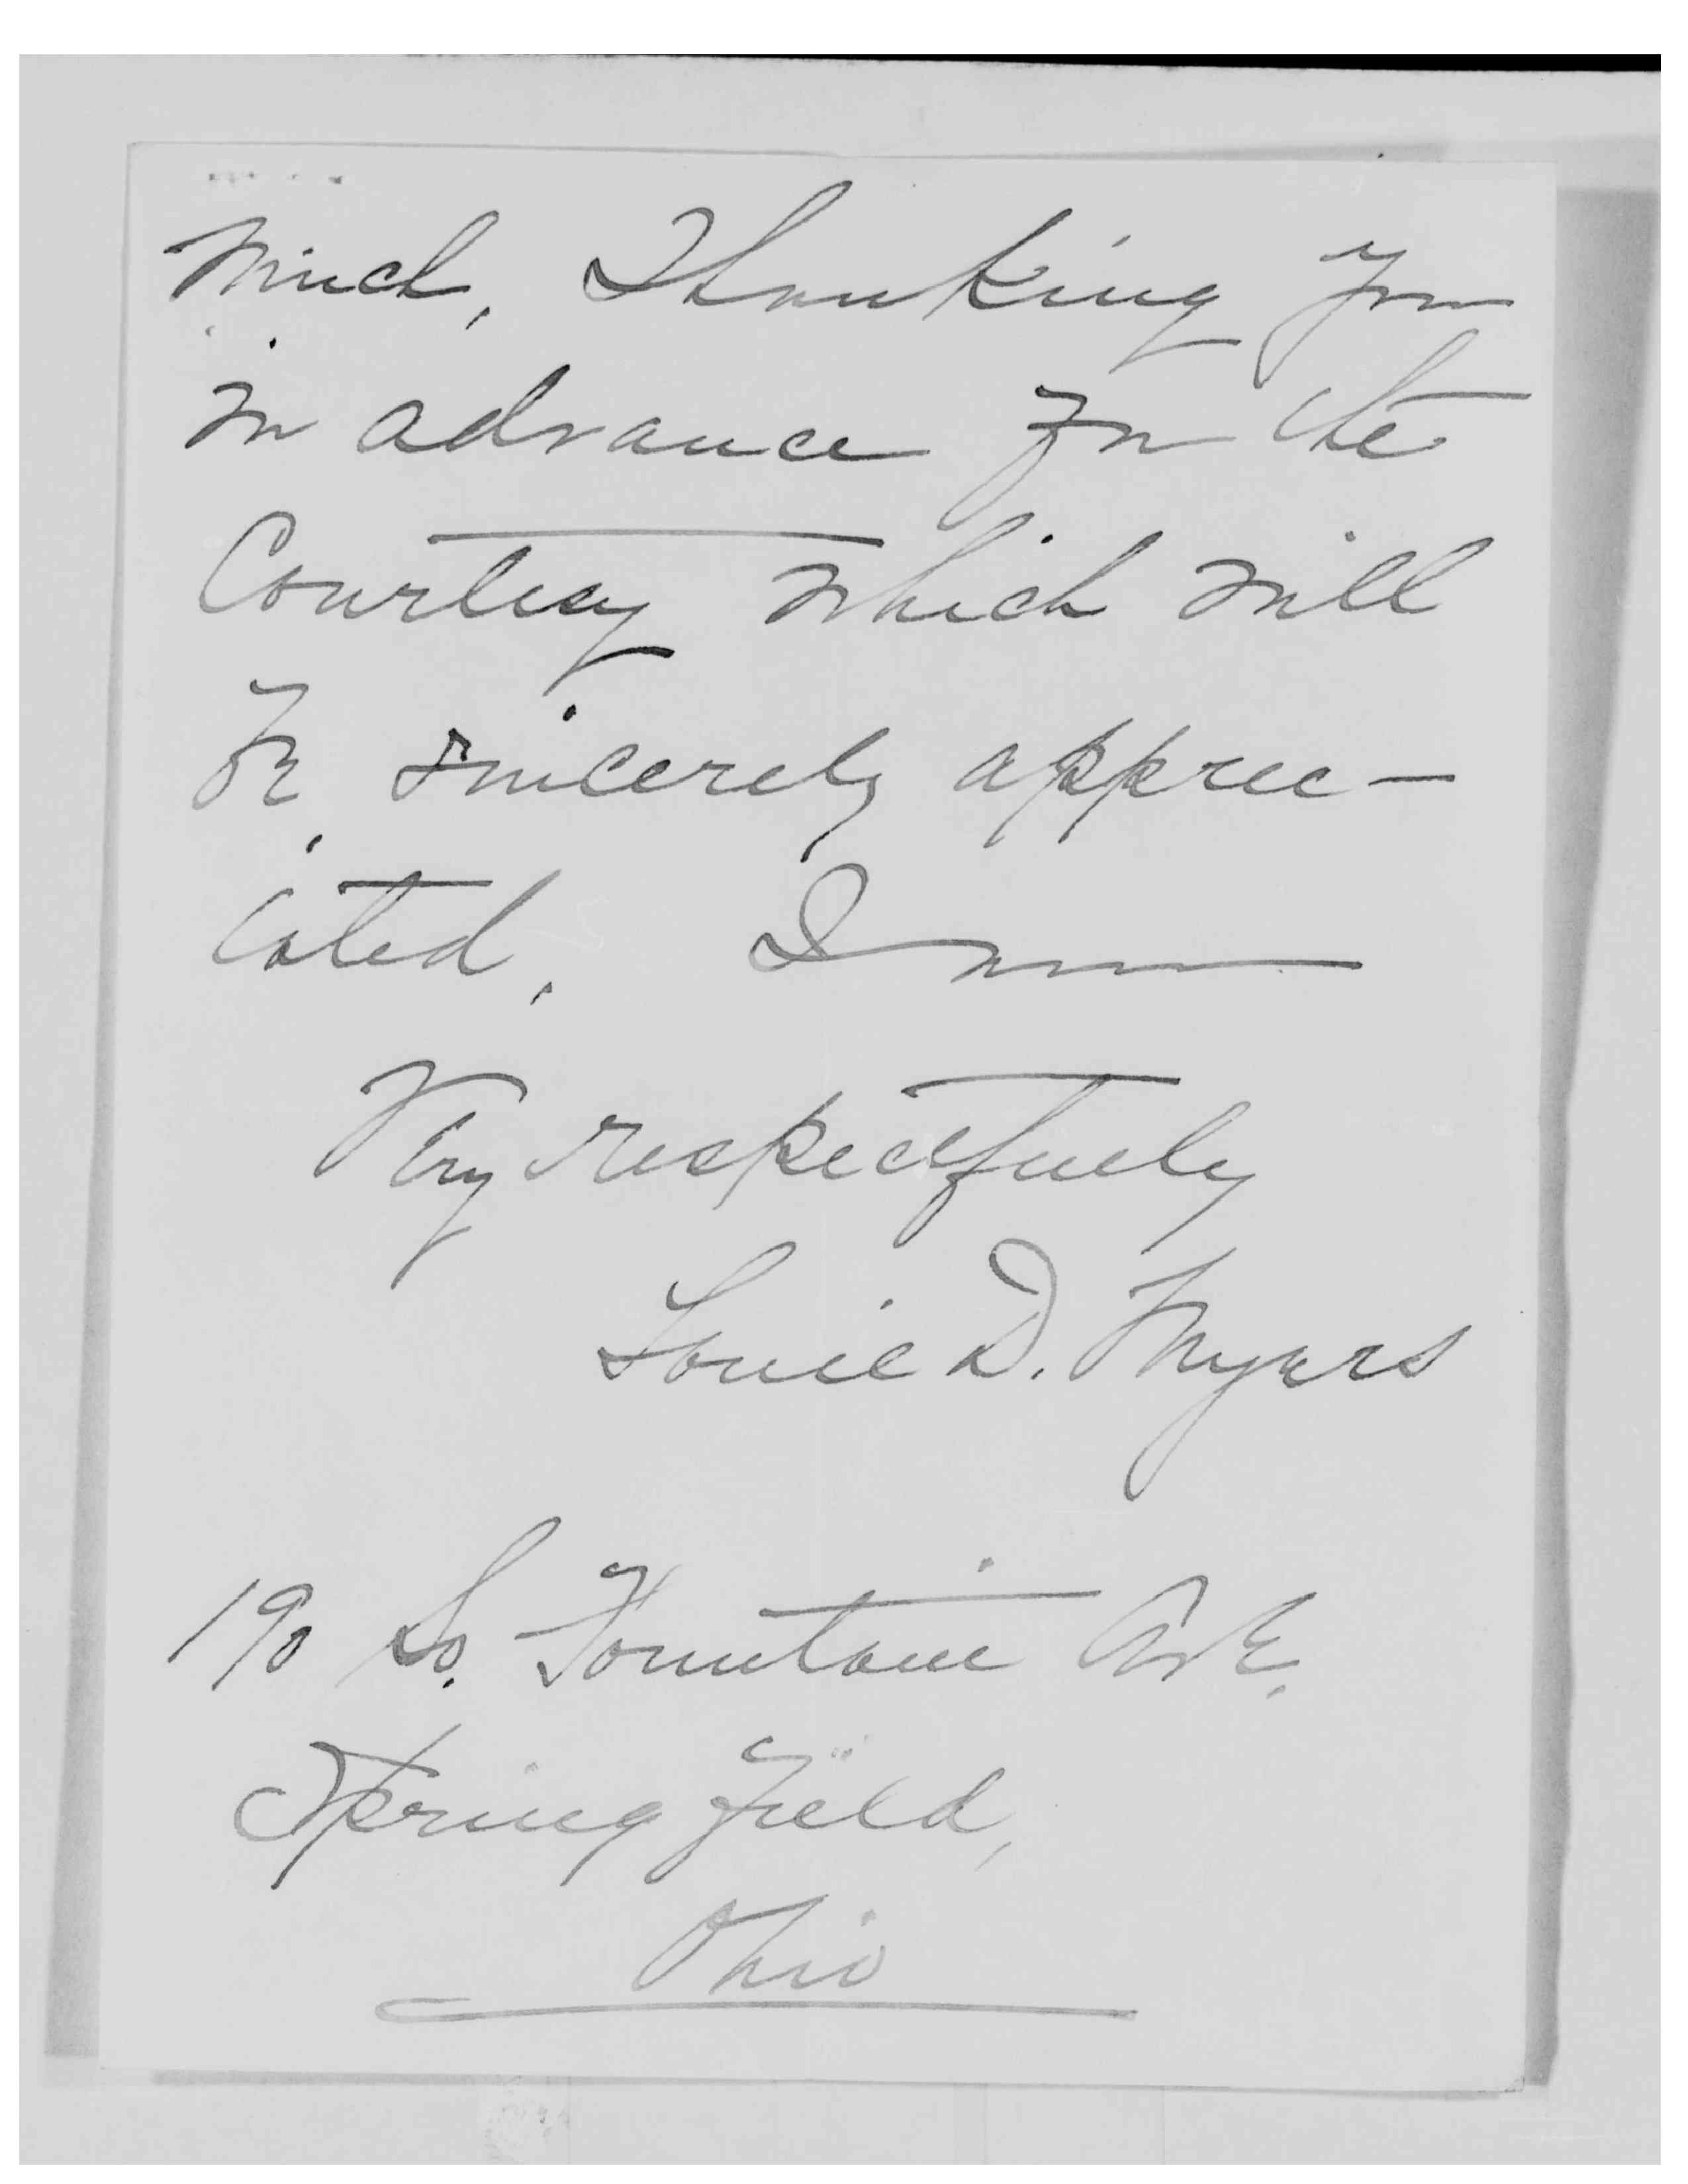 much. Thanking you
in advance for the
Courtesy which will
be sincerely apprec-
iated, I am
Very respectfully
Louie D. Myers
190 So. Fountain Ave.
Springfield,
Ohio